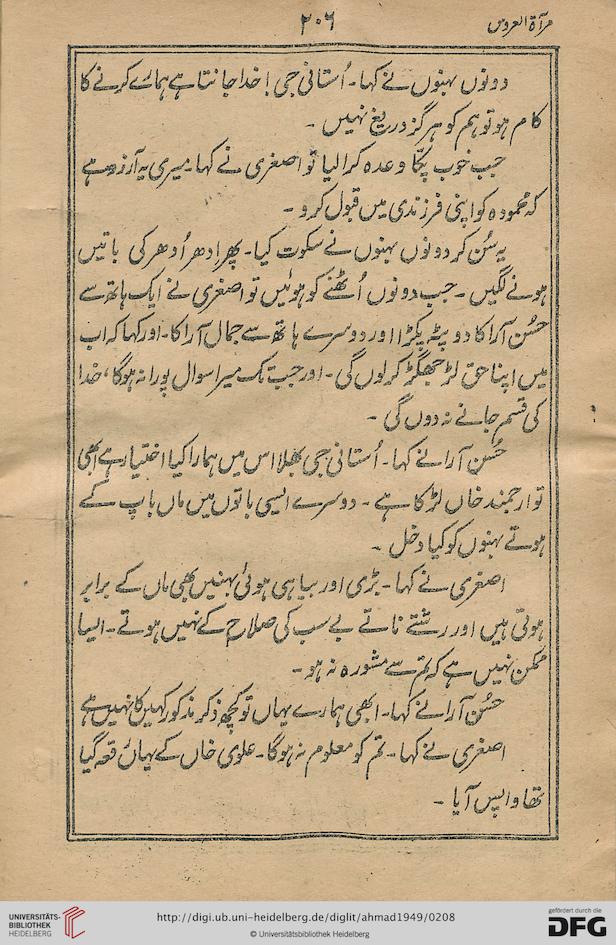 مرآۃ العروس
۲۰۶
دونوں بہنوں نے کہا۔ اُستانی جی! خدا جانتا ہے ہمارے کرنے کا
کام ہو تو ہم کو ہرگز دریغ نہیں ۔
جب خوب پکّا وعدہ کرا لیا تو اصغری نے کہا۔ میری یہ آرزو ہے
کہ محمودہ کو اپنی فرزندی میں قبول کرو ۔
یہ سُن کر دونوں بہنوں نے سکوت کیا۔ پھر ادھر اُدھر کی باتیں
ہونے لگیں ۔ جب دونوں اُٹھنے کو ہوئیں تو اصغری نے ایک ہاتھ سے
حسُن آرا کا دوپٹہ پکڑا اور دوسرے ہاتھ سے جمال آرا کا۔ اور کہا کہ اب
میں اپنا حق لڑ جھگڑ کر لوں گی ۔ اور جب تک میرا سوال پورا نہ ہوگا، خدا
کی قسم جانے نہ دوں گی ۔
حسُن آرا نے کہا۔ اُستانی جی بھلا اس میں ہمارا کیا اختیار ہے ابھی
تو ارجمند خاں لڑکا ہے ۔ دوسرے ایسی باتوں میں ماں باپ کے
ہوتے بہنوں کو کیا دخل ۔
اصغری نے کہا۔ بڑی اور بیاہی ہوئی بہنیں بھی ماں کے برابر
ہوتی ہیں اور رشتے ناتے بے سب کی صلاح کے نہیں ہوتے۔ ایسا
ممکن نہیں ہے کہ تم سے مشورہ نہ ہو ۔
حسُن آرا نے کہا۔ ابھی ہمارے یہاں تو کچھ ذکر مذکور کہیں کا نہیں ہے
اصغری نے کہا۔ تم کو معلوم نہ ہوگا۔ علوی خاں کے یہاں رقعہ گیا
تھا واپس آیا ۔
UNIVERSITÄTS-
BIBLIOTHEK
HEIDELBERG
http://digi.ub.uni-heidelberg.de/diglit/ahmad1949/0208
© Universitätsbibliothek Heidelberg
gefördert durch die
DFG